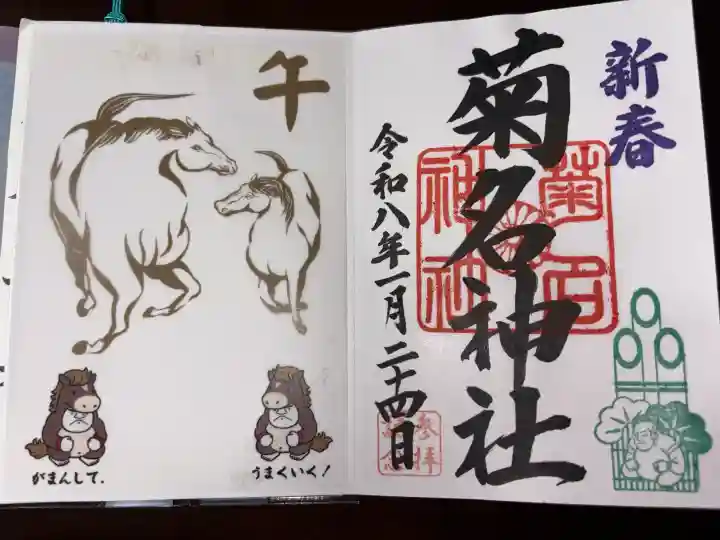 午
がまんして.
うまくいく!
新春
菊名神社
菊名
神社
令和八年一月二十四日
参拝
記念